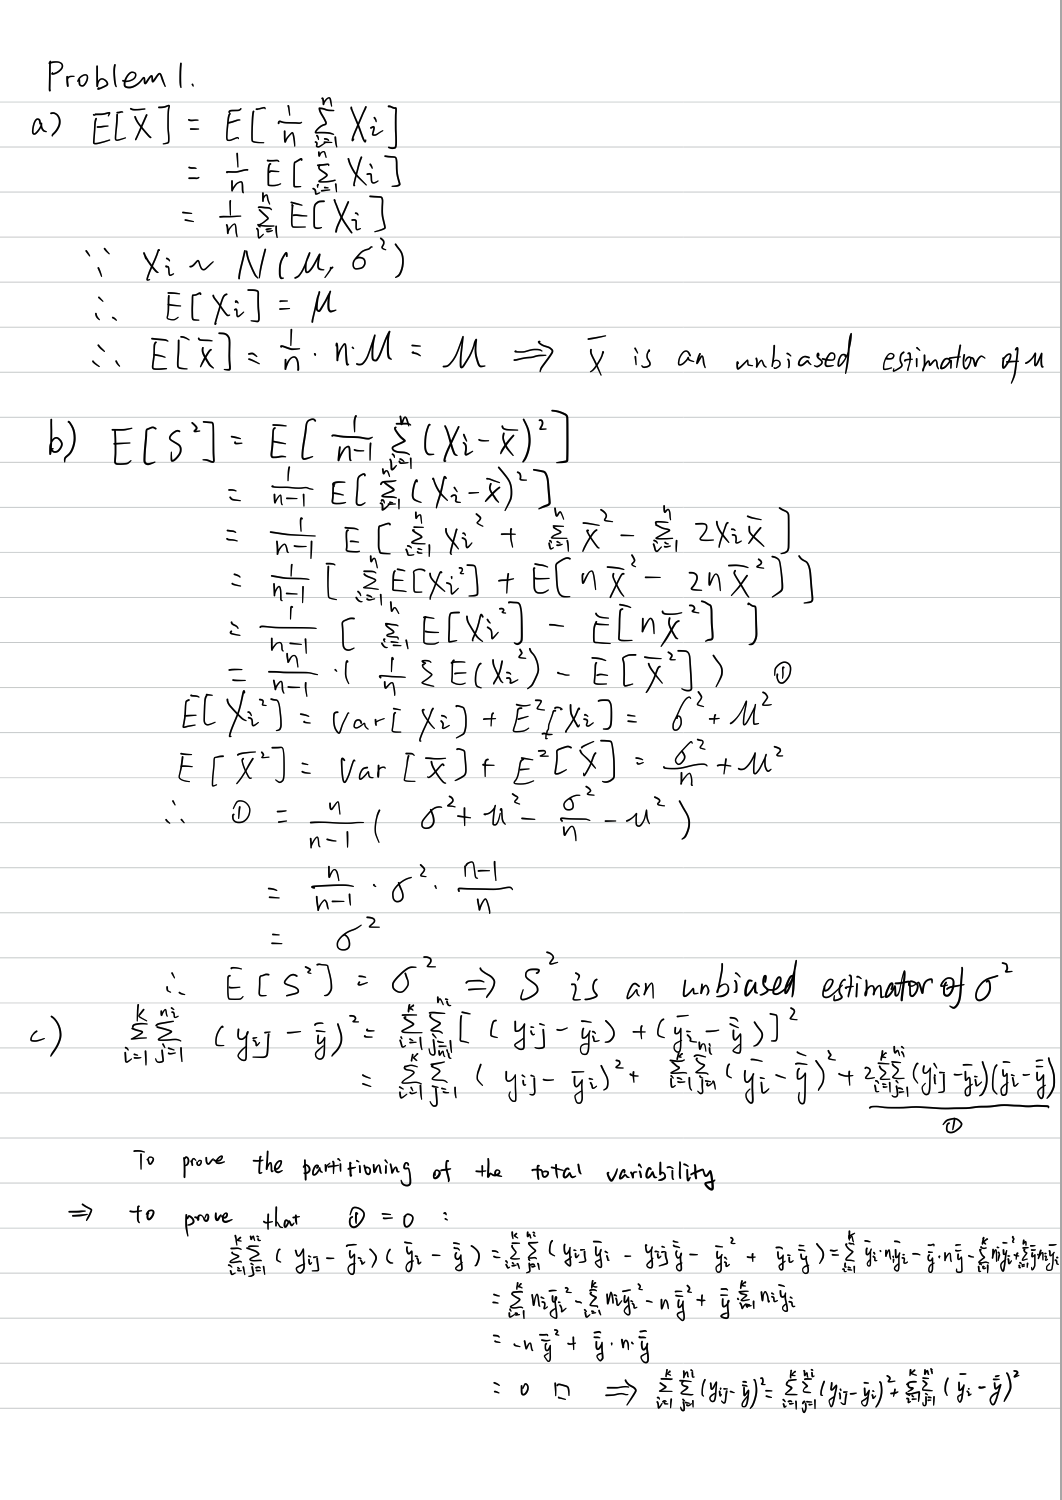 Problem 1.
a) E[X̄] = E[ 1/n Σ_{i=1}^{n} Xi ]
= 1/n E[ Σ_{i=1}^{n} Xi ]
= 1/n Σ_{i=1}^{n} E[Xi]
∵ Xi ~ N(μ, σ²)
∴ E[Xi] = μ
∴ E[X̄] = 1/n · n·μ = μ ⇒ X̄ is an unbiased estimator of μ
b) E[S²] = E[ 1/(n-1) Σ_{i=1}^{n} (Xi - X̄)² ]
= 1/(n-1) E[ Σ_{i=1}^{n} (Xi - X̄)² ]
= 1/(n-1) E[ Σ_{i=1}^{n} Xi² + Σ_{i=1}^{n} X̄² - Σ_{i=1}^{n} 2XiX̄ ]
= 1/(n-1) [ Σ_{i=1}^{n} E[Xi²] + E[nX̄² - 2nX̄²] ]
= 1/(n-1) [ Σ_{i=1}^{n} E[Xi²] - E[nX̄²] ]
= n/(n-1) · ( 1/n Σ E(Xi²) - E[X̄²] ) ①
E[Xi²] = Var[Xi] + E²[Xi] = σ² + μ²
E[X̄²] = Var[X̄] + E²[X̄] = σ²/n + μ²
∴ ① = n/(n-1) ( σ² + μ² - σ²/n - μ² )
= n/(n-1) · σ² · (n-1)/n
= σ²
∴ E[S²] = σ² ⇒ S² is an unbiased estimator of σ²
c) Σ_{i=1}^{k} Σ_{j=1}^{ni} (yij - ȳ̄)² = Σ_{i=1}^{k} Σ_{j=1}^{ni} [(yij - ȳi) + (ȳi - ȳ̄)]²
= Σ_{i=1}^{k} Σ_{j=1}^{ni} (yij - ȳi)² + Σ_{i=1}^{k} Σ_{j=1}^{ni} (ȳi - ȳ̄)² + 2 Σ_{i=1}^{k} Σ_{j=1}^{ni} (yij - ȳi)(ȳi - ȳ̄)
①
To prove the partitioning of the total variability
⇒ to prove that ① = 0 :
Σ_{i=1}^{k} Σ_{j=1}^{ni} (yij - ȳi)(ȳi - ȳ̄) = Σ_{i=1}^{k} Σ_{j=1}^{ni} (yijȳi - yijȳ̄ - ȳi² + ȳiȳ̄) = Σ_{i=1}^{k} ȳi·niȳi - ȳ̄·nȳ̄ - Σ_{i=1}^{k} niȳi² + Σ_{i=1}^{k} ȳ̄niȳi
= Σ_{i=1}^{k} niȳi² - Σ_{i=1}^{k} niȳi² - nȳ̄² + ȳ̄ Σ_{i=1}^{k} niȳi
= -nȳ̄² + ȳ̄·n·ȳ̄
= 0 □ ⇒ Σ_{i=1}^{k} Σ_{j=1}^{ni} (yij - ȳ̄)² = Σ_{i=1}^{k} Σ_{j=1}^{ni} (yij - ȳi)² + Σ_{i=1}^{k} Σ_{j=1}^{ni} (ȳi - ȳ̄)²